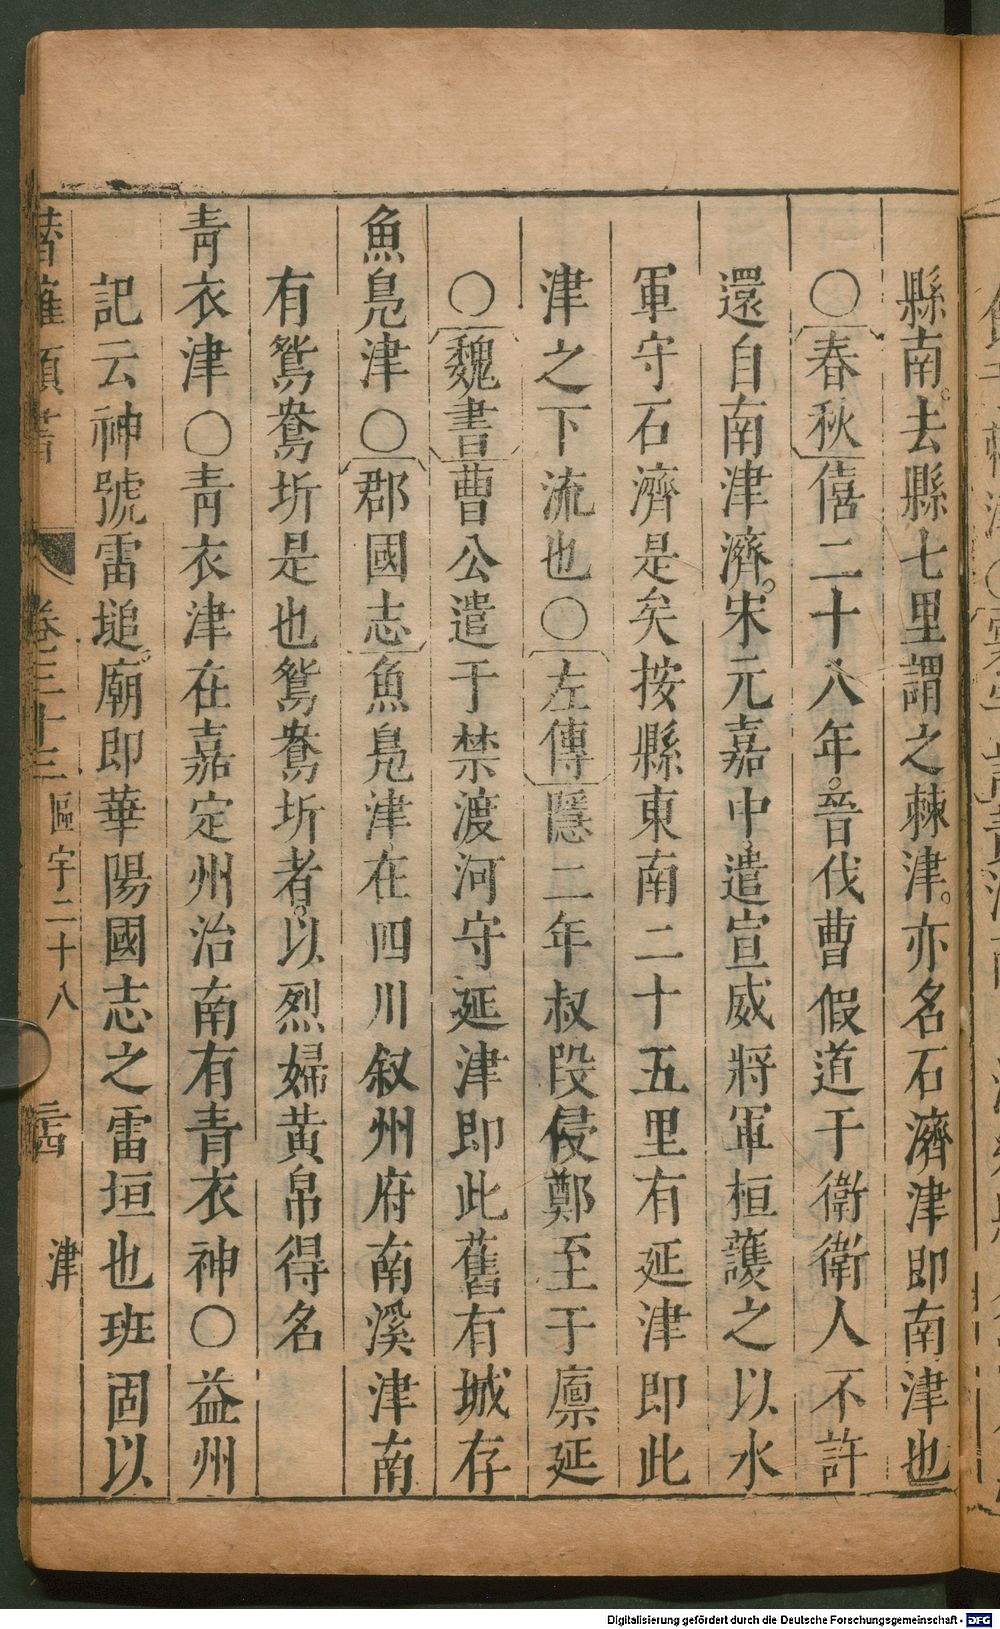 縣南。去縣七里謂之棘津。亦名石濟津即南津也
○春秋僖二十八年。晉伐曹假道于衞衞人不許
還自南津濟。宋元嘉中遣宣威將軍桓護之以水
軍守石濟是矣按縣東南二十五里有延津即此
津之下流也○左傳隱二年叔段侵鄭至于廩延
○魏書曹公遣于禁渡河守延津即此舊有城存
魚鳧津○郡國志魚鳧津在四川叙州府南溪津南
有鴛鴦圻是也鴛鴦圻者。以烈婦黄帛得名
青衣津○青衣津在嘉定州治南有青衣神○益州
記云神號雷塠。廟即華陽國志之雷垣也班固以
卷三十三 區宇二十八 津
Digitalisierung gefördert durch die Deutsche Forschungsgemeinschaft - DFG